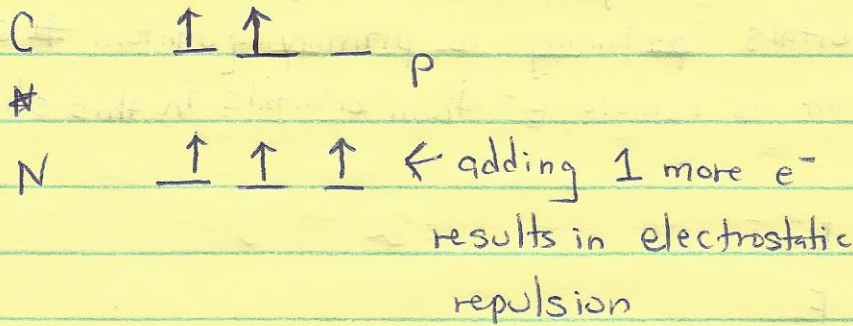 C ↑ ↑ _ P
N ↑ ↑ ↑ ← adding 1 more e⁻
results in electrostatic
repulsion